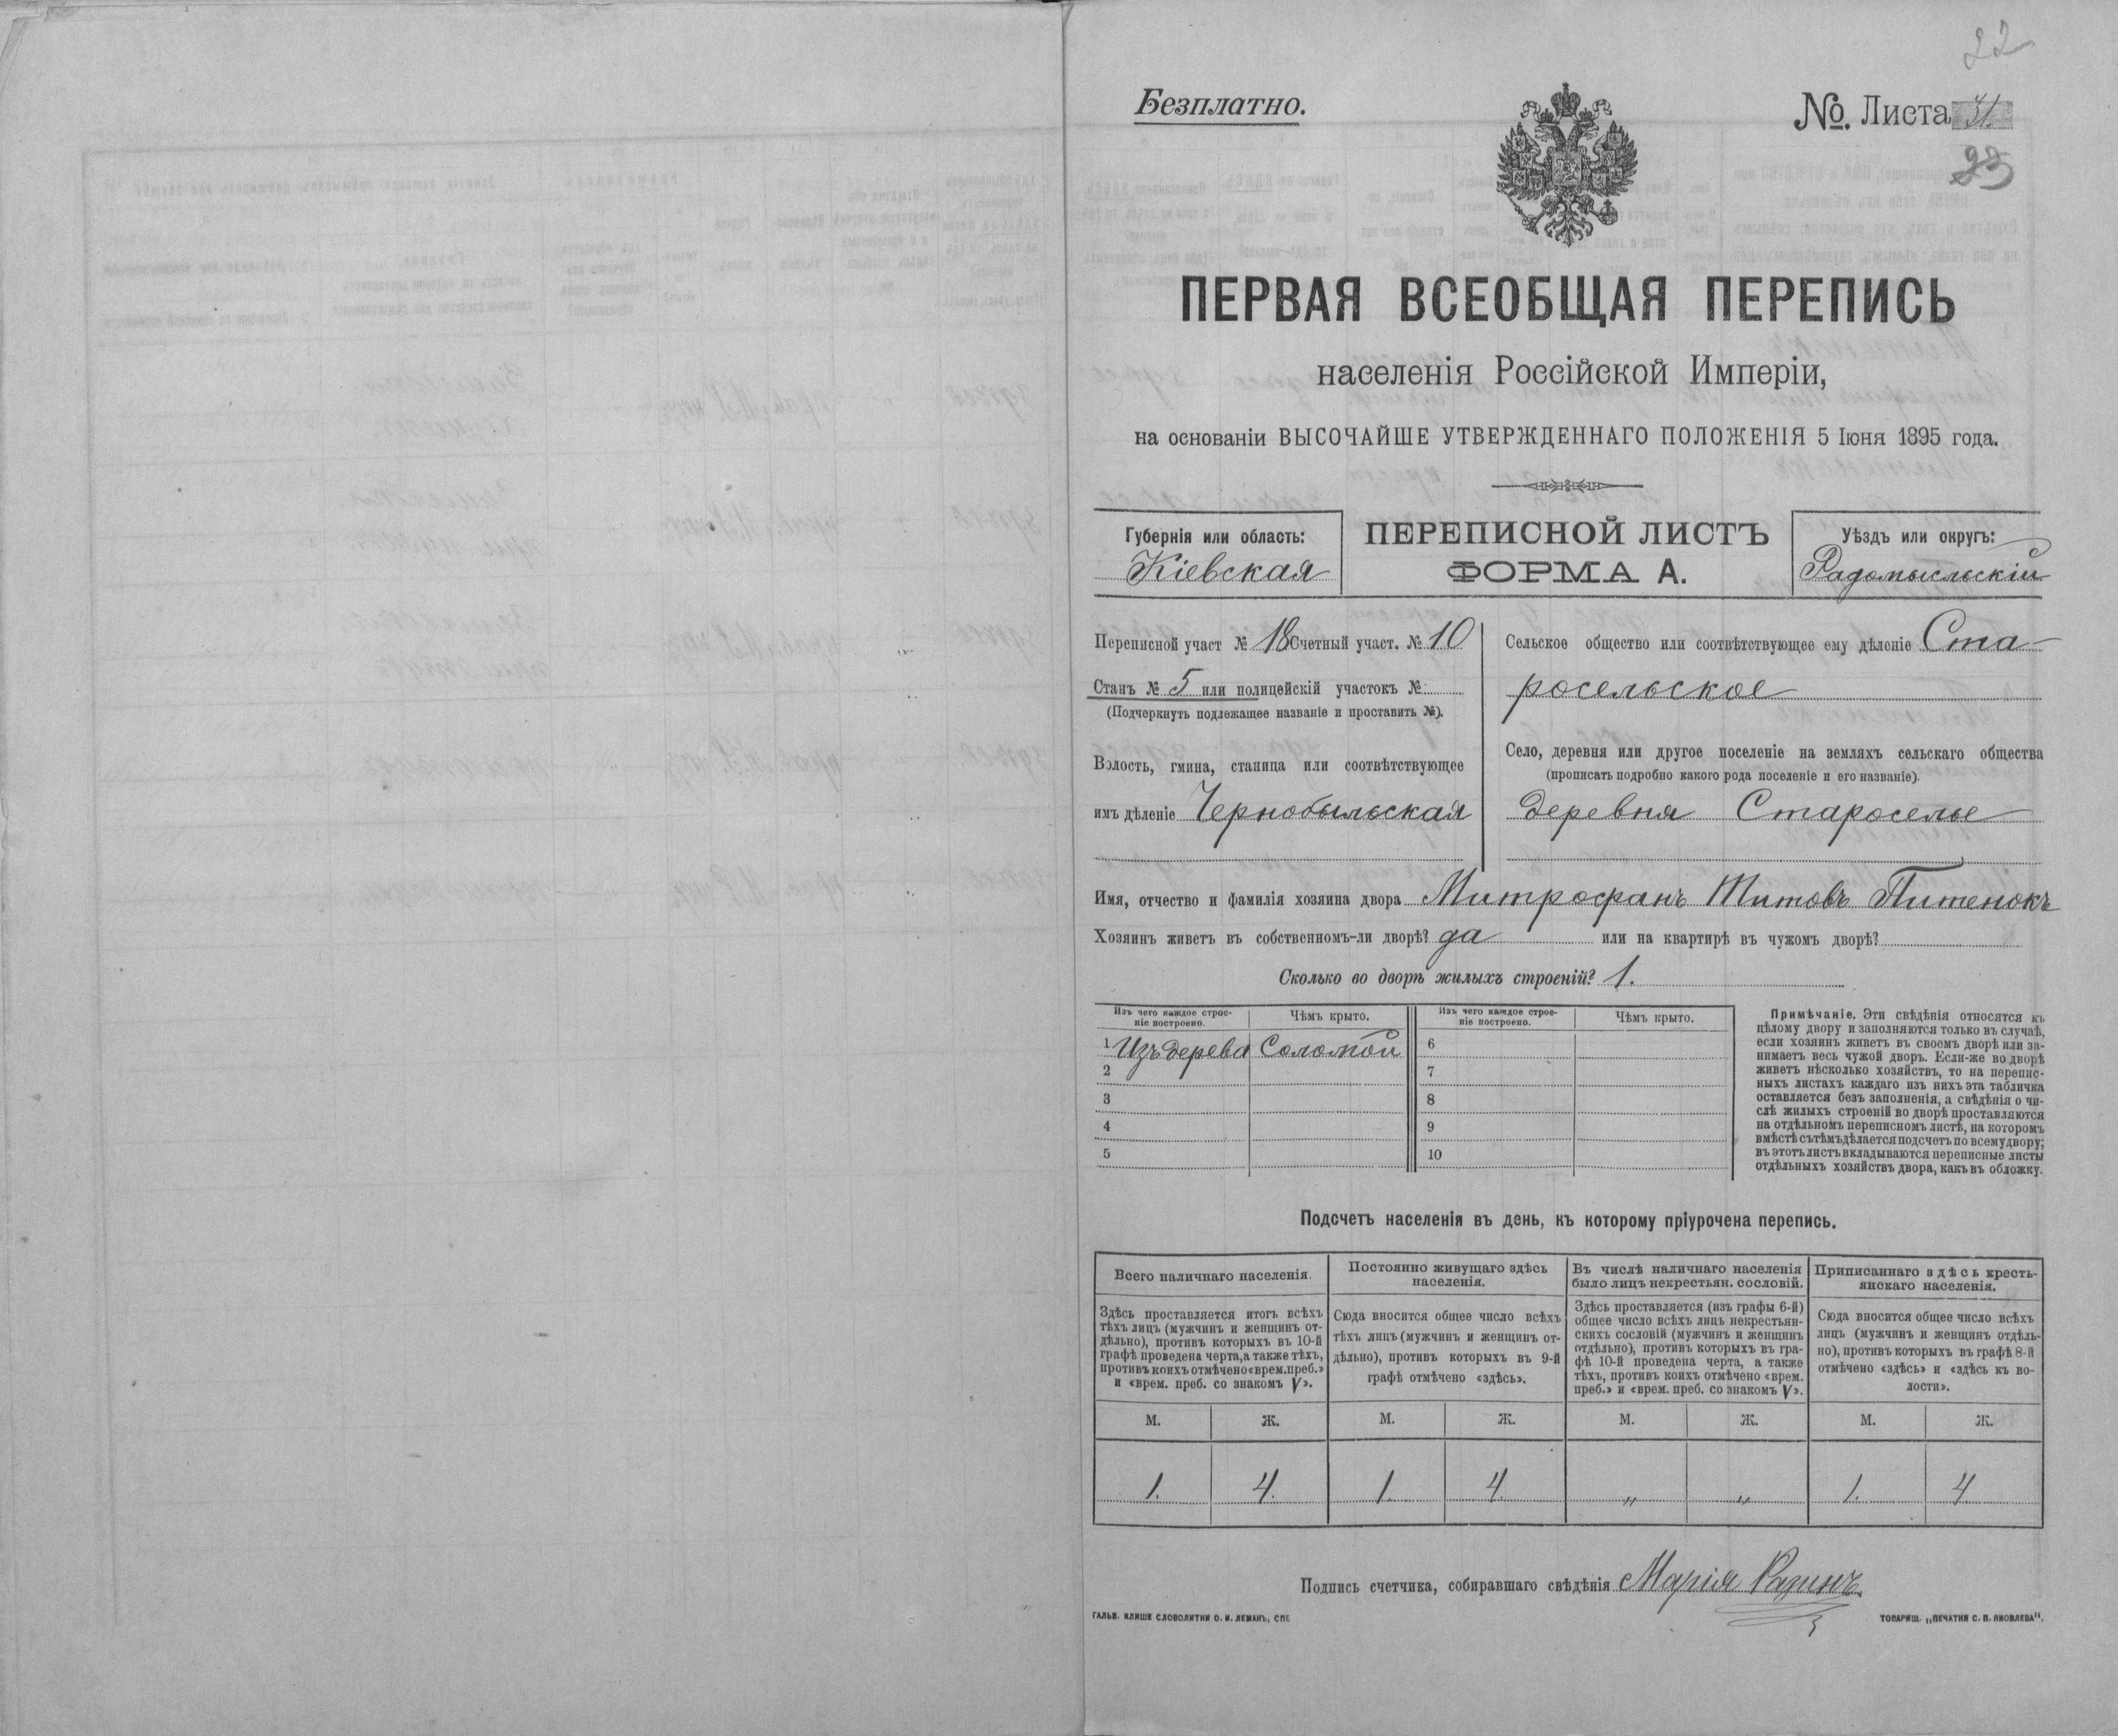 22
Безплатно.
№. Листа 31.
ПЕРВАЯ ВСЕОБЩАЯ ПЕРЕПИСЬ
населенія Россійской Имперіи,
на основаніи ВЫСОЧАЙШЕ УТВЕРЖДЕННАГО ПОЛОЖЕНІЯ 5 Іюня 1895 года.
Губернія или область:
Кіевская
ПЕРЕПИСНОЙ ЛИСТЪ
ФОРМА А.
Уѣздъ или округъ:
Радомысльскій
Переписной участ № 18 Счетный участ. № 10
Станъ № 5 или полицейскій участокъ №
(Подчеркнуть подлежащее названіе и проставить №).
Волость, гмина, станица или соотвѣтствующее
имъ дѣленіе Чернобыльская
Сельское общество или соотвѣтствующее ему дѣленіе Ста-
росельское
Село, деревня или другое поселеніе на земляхъ сельскаго общества
(прописать подробно какого рода поселеніе и его названіе).
деревня Староселье
Имя, отчество и фамилія хозяина двора Митрофанъ Титовъ Питенокъ
Хозяинъ живетъ въ собственномъ-ли дворѣ? да или на квартирѣ въ чужомъ дворѣ?
Сколько во дворѣ жилыхъ строеній? 1.
Изъ чего каждое строе-
ніе построено.
Чѣмъ крыто.
Изъ чего каждое строе-
ніе построено.
Чѣмъ крыто.
1 Изъ дерева Соломой
2
3
4
5
6
7
8
9
10
Примѣчаніе. Эти свѣдѣнія относятся къ
цѣлому двору и заполняются только въ случаѣ,
если хозяинъ живетъ въ своемъ дворѣ или за-
нимаетъ весь чужой дворъ. Если-же во дворѣ
живетъ нѣсколько хозяйствъ, то на перепис-
ныхъ листахъ каждаго изъ нихъ эта табличка
оставляется безъ заполненія, а свѣдѣнія о чи-
слѣ жилыхъ строеній во дворѣ проставляются
на отдѣльномъ переписномъ листѣ, на которомъ
вмѣстѣ съ тѣмъ дѣлается подсчетъ по всему двору;
въ этотъ листъ вкладываются переписные листы
отдѣльныхъ хозяйствъ двора, какъ въ обложку.
Подсчетъ населенія въ день, къ которому пріурочена перепись.
Всего наличнаго населенія.
Здѣсь проставляется итогъ всѣхъ
тѣхъ лицъ (мужчинъ и женщинъ от-
дѣльно), противъ которыхъ въ 10-й
графѣ проведена черта, а также тѣхъ,
противъ коихъ отмѣчено «врем. преб.»
и «врем. преб. со знакомъ V».
Постоянно живущаго здѣсь
населенія.
Сюда вносится общее число всѣхъ
тѣхъ лицъ (мужчинъ и женщинъ от-
дѣльно), противъ которыхъ въ 9-й
графѣ отмѣчено «здѣсь».
Въ числѣ наличнаго населенія
было лицъ некрестьян. сословій.
Здѣсь проставляется (изъ графы 6-й)
общее число всѣхъ лицъ некрестьян-
скихъ сословій (мужчинъ и женщинъ
отдѣльно), противъ которыхъ въ гра-
фѣ 10-й проведена черта, а также
тѣхъ, противъ коихъ отмѣчено «врем.
преб.» и «врем. преб. со знакомъ V».
Приписаннаго здѣсь кресть-
янскаго населенія.
Сюда вносится общее число всѣхъ
лицъ (мужчинъ и женщинъ отдѣль-
но), противъ которыхъ въ графѣ 8-й
отмѣчено «здѣсь» и «здѣсь къ во-
лости».
М. Ж. М. Ж. М. Ж. М. Ж.
1. 4. 1. 4. „ „ 1. 4
Подпись счетчика, собиравшаго свѣдѣнія Марія
ГАЛЬВ. КЛИШЕ СЛОВОЛИТНИ О. И. ЛЕМАНЪ, СПБ
ТОВАРИЩ. „ПЕЧАТНЯ С. П. ЯКОВЛЕВА".